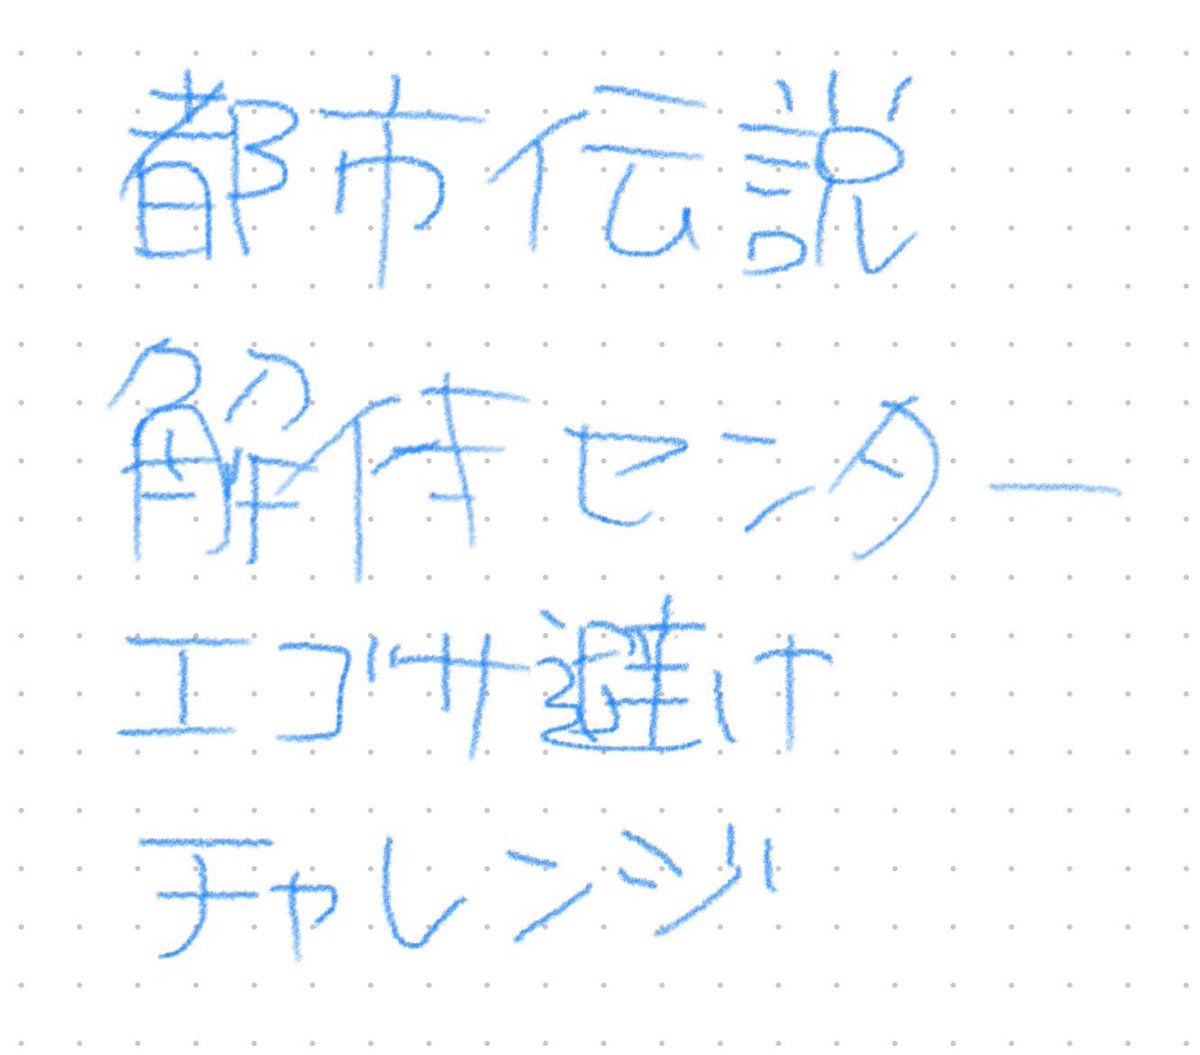 都市伝説
解体センター
エゴサ避け
チャレンジ